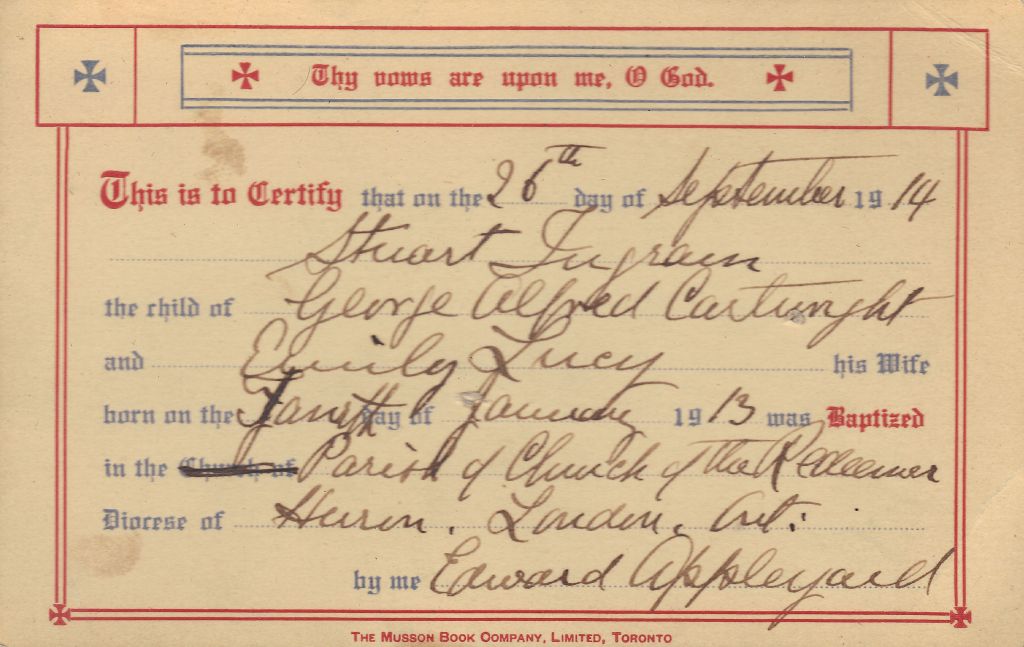 Thy vows are upon me, O God.
This is to Certify that on the 26th day of September 1914
Stuart Ingram
the child of George Alfred Cartwright
and Emily Lucy his Wife
born on the day of January 1913 was Baptized
in the Church of Parish of Church of The Redeemer
Diocese of Huron. London. Ont:
by me Edward Appleyard
THE MUSSON BOOK COMPANY, LIMITED, TORONTO